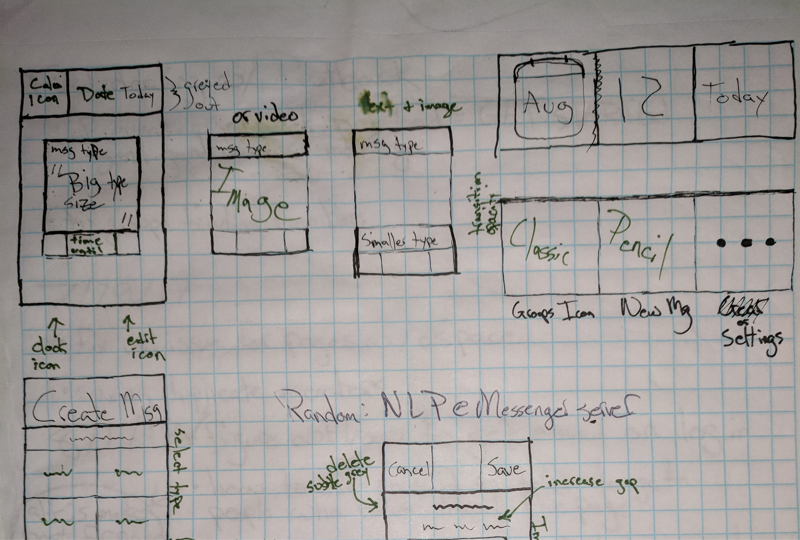 Cala
icon
Date Today
greyed
out
msg type
"Big type
size
"
time
until
clock
icon
edit
icon
or video
msg type
Image
text + image
msg type
Smaller type
Aug
12
Today
transition
Classic
Pencil
...
Groups Icon
New Msg
or
Settings
Create Msg
select type
Random: NLP e Messenger server
delete
subtle grey
Cancel
Save
increase gap